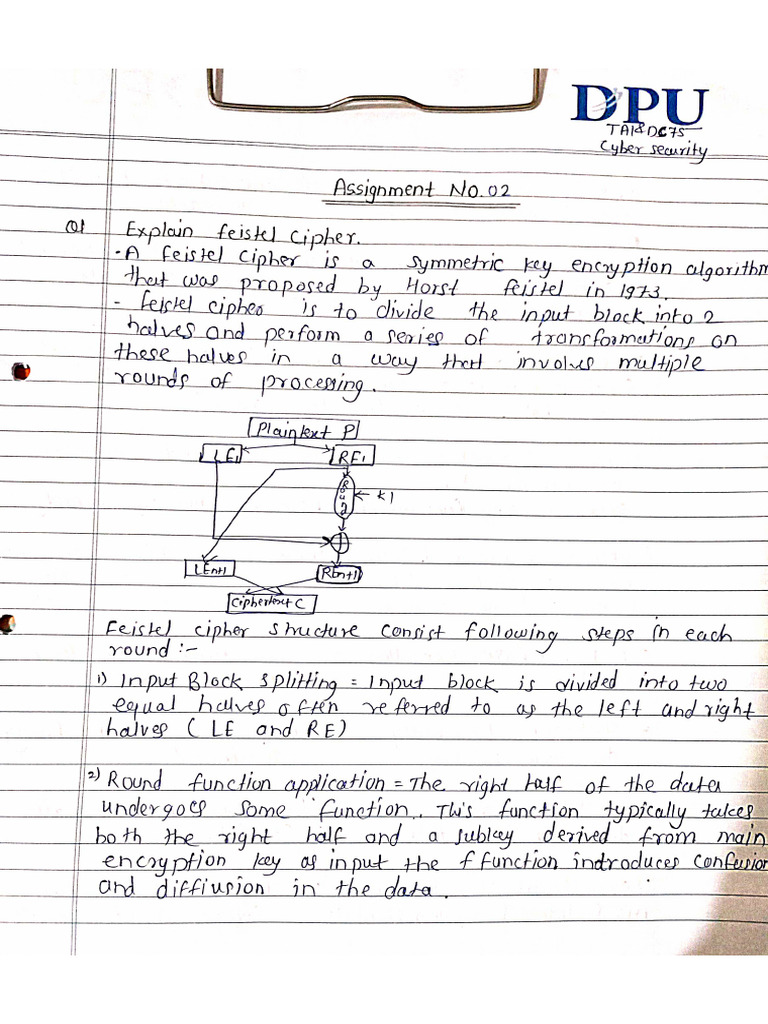 DPU
TA18DC75
Cyber security
Assignment No.02
Q1 Explain Feistel Cipher.
- A Feistel Cipher is a symmetric key encryption algorithm
that was proposed by Horst Feistel in 1973.
- feistel cipher is to divide the input block into 2
halves and perform a series of transformations on
these halves in a way that involves multiple
rounds of processing.
Plaintext P
LE1 RE1
K1
LEn+1 REn+1
Ciphertext C
Feistel cipher structure consist following steps in each
round :-
1) Input Block splitting = Input block is divided into two
equal halves often referred to as the left and right
halves ( LE and RE)
2) Round function application = The right half of the data
undergoes some function. This function typically takes
both the right half and a subkey derived from main
encryption key as input the f function indroduces confusion
and diffiusion in the data.